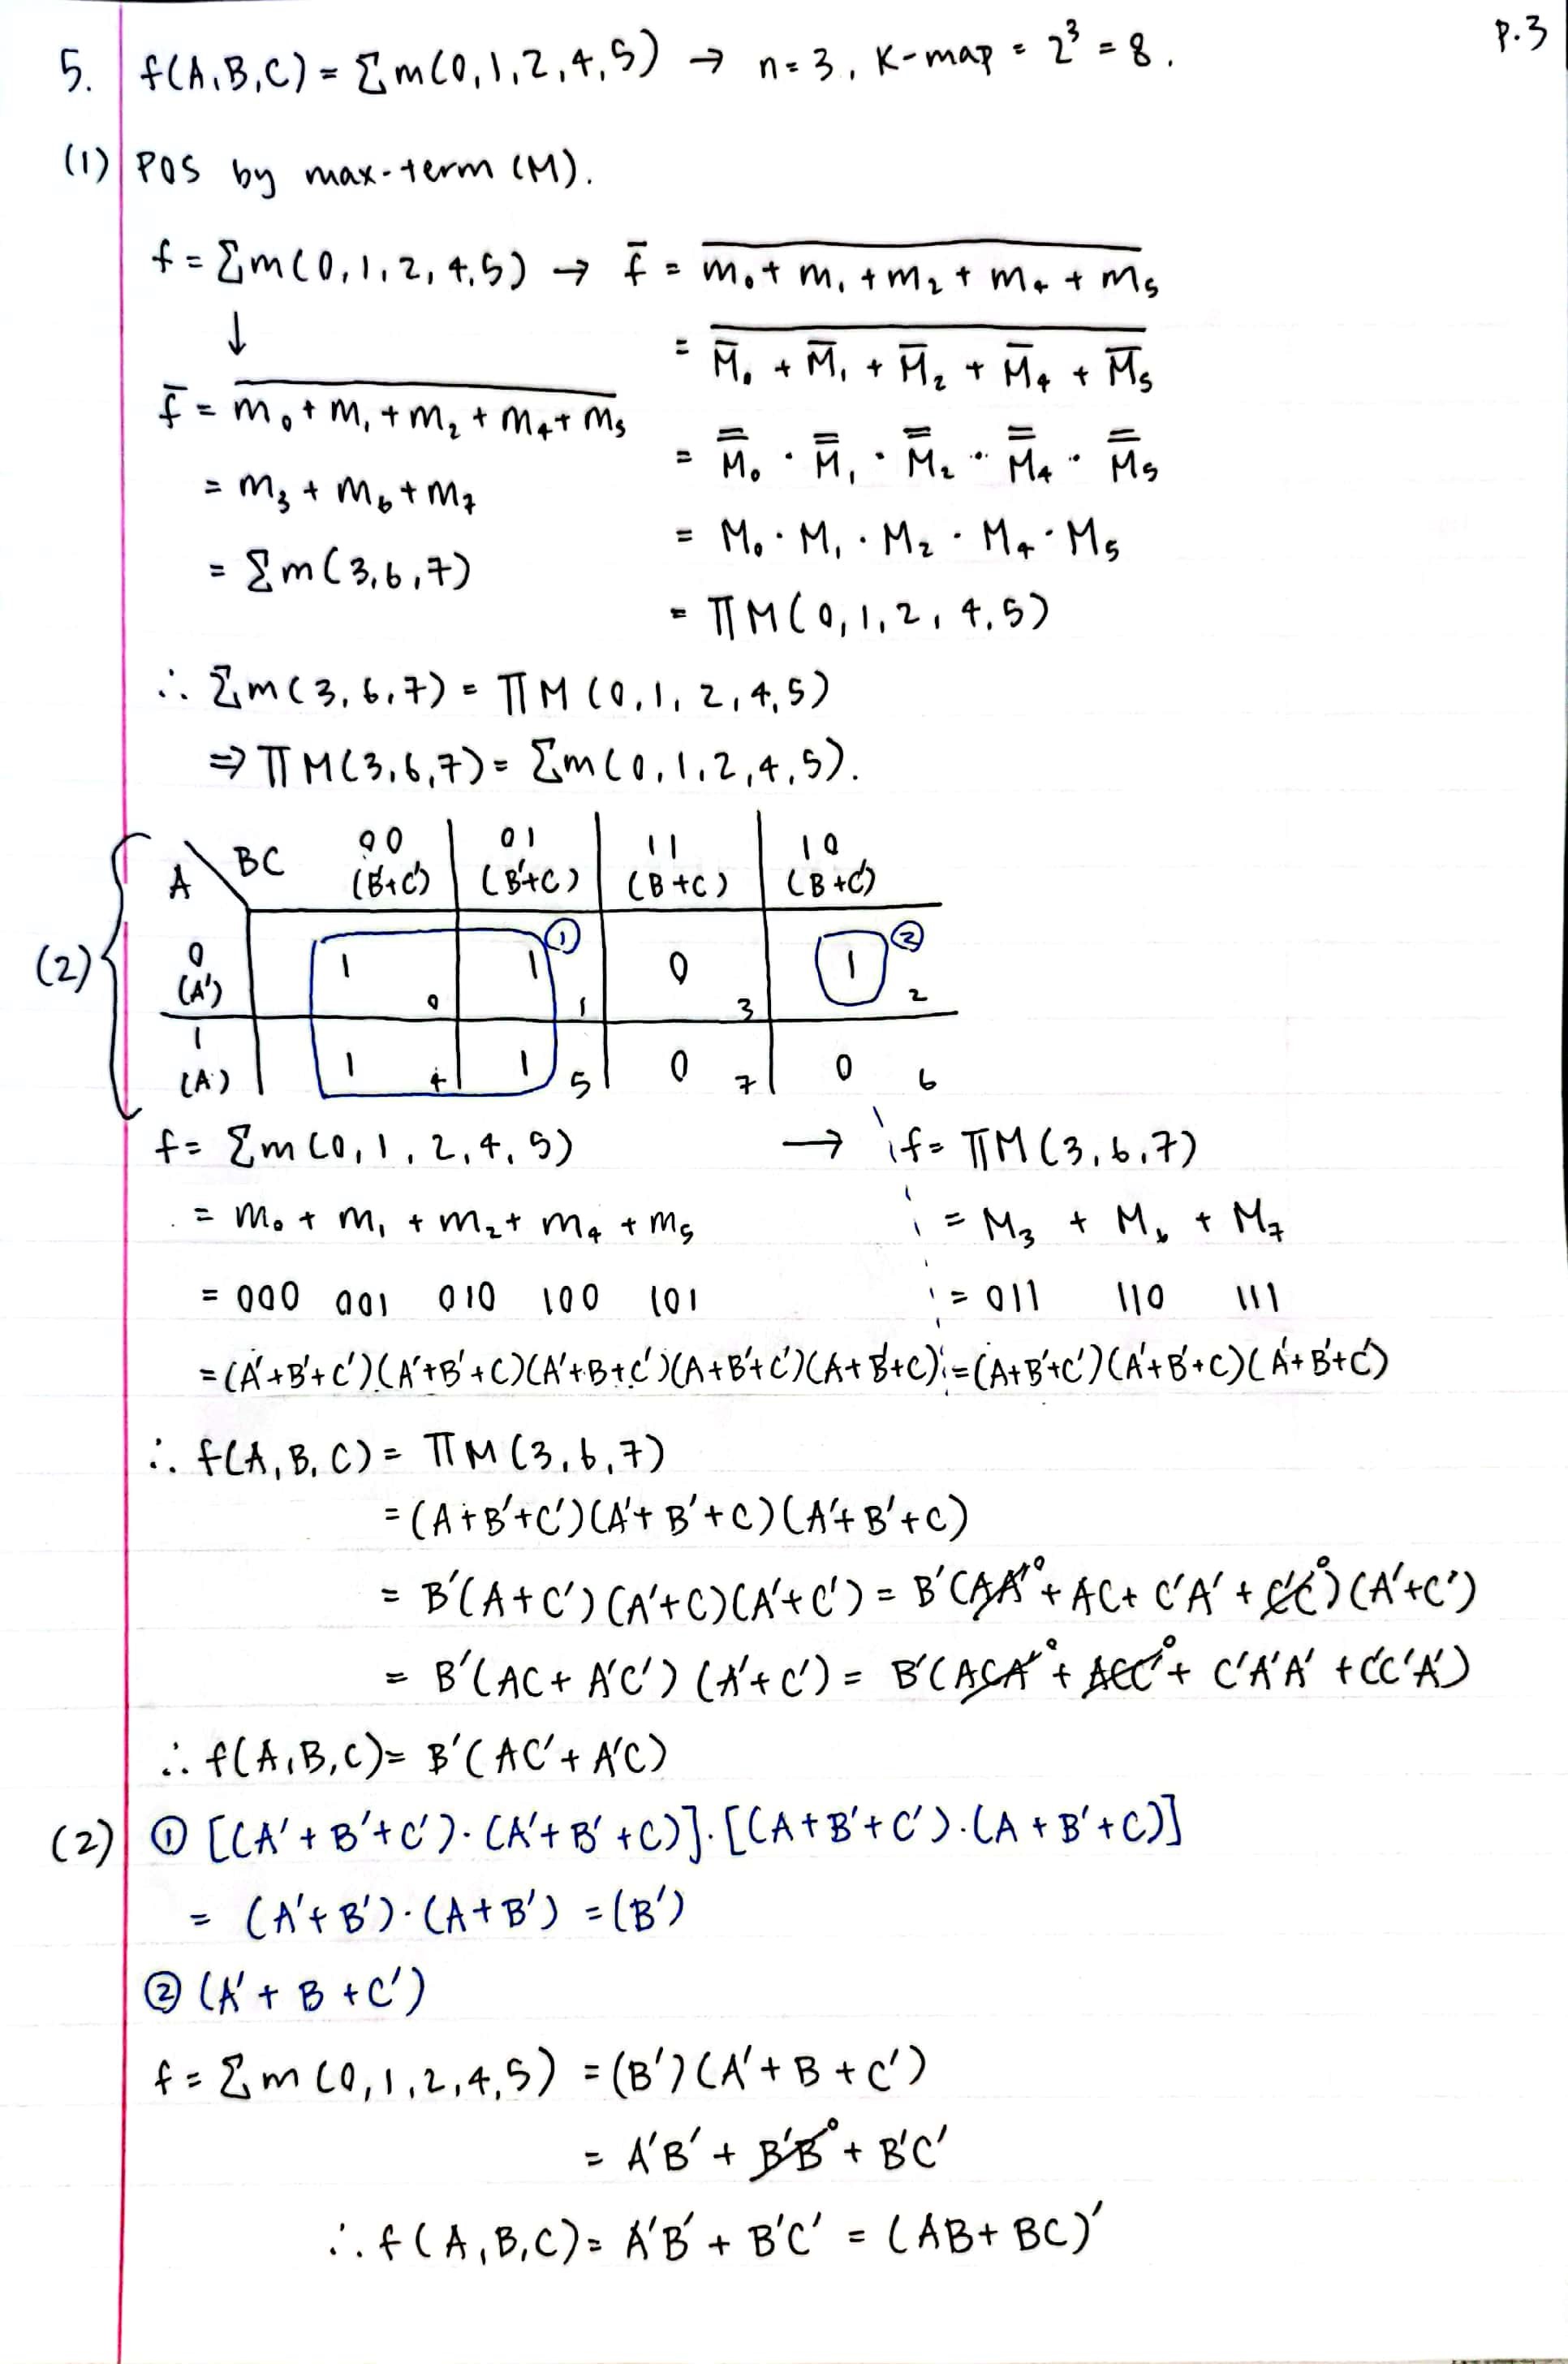 P.3
5. f(A,B,C) = Σm(0,1,2,4,5) → n=3, K-map = 2³ = 8.
(1) POS by max-term (M).
f = Σm(0,1,2,4,5) → f̅ = \overline{m₀ + m₁ + m₂ + m₄ + m₅}
↓
= \overline{M̅₀ + M̅₁ + M̅₂ + M̅₄ + M̅₅}
f̅ = \overline{m₀ + m₁ + m₂ + m₄ + m₅}
= M̿₀ · M̿₁ · M̿₂ · M̿₄ · M̿₅
= m₃ + m₆ + m₇
= M₀ · M₁ · M₂ · M₄ · M₅
= Σm(3,6,7)
= ΠM(0,1,2,4,5)
∴ Σm(3,6,7) = ΠM(0,1,2,4,5)
⇒ ΠM(3,6,7) = Σm(0,1,2,4,5).
(2)
A \ BC 00 01 11 10
(B'+C') (B'+C) (B+C) (B+C')
0 1 1 ① 0 1 ②
(A') 0 1 3 2
1 1 1 0 0
(A) 4 5 7 6
f = Σm(0,1,2,4,5) → f = ΠM(3,6,7)
= m₀ + m₁ + m₂ + m₄ + m₅ = M₃ + M₆ + M₇
= 000 001 010 100 101 = 011 110 111
= (A'+B'+C')(A'+B'+C)(A'+B+C')(A+B'+C')(A+B'+C) = (A+B'+C')(A'+B'+C)(A'+B'+C')
∴ f(A,B,C) = ΠM(3,6,7)
= (A+B'+C')(A'+B'+C)(A'+B'+C)
= B'(A+C')(A'+C)(A'+C') = B'(AA'⁰ + AC + C'A' + C'C⁰)(A'+C')
= B'(AC + A'C')(A'+C') = B'(ACA'⁰ + ACC'⁰ + C'A'A' + C'C'A')
∴ f(A,B,C) = B'(AC' + A'C)
(2) ① [(A'+B'+C')·(A'+B'+C)]·[(A+B'+C')·(A+B'+C)]
= (A'+B')·(A+B') = (B')
② (A'+B+C')
f = Σm(0,1,2,4,5) = (B')(A'+B+C')
= A'B' + B'B⁰ + B'C'
∴ f(A,B,C) = A'B' + B'C' = (AB + BC)'